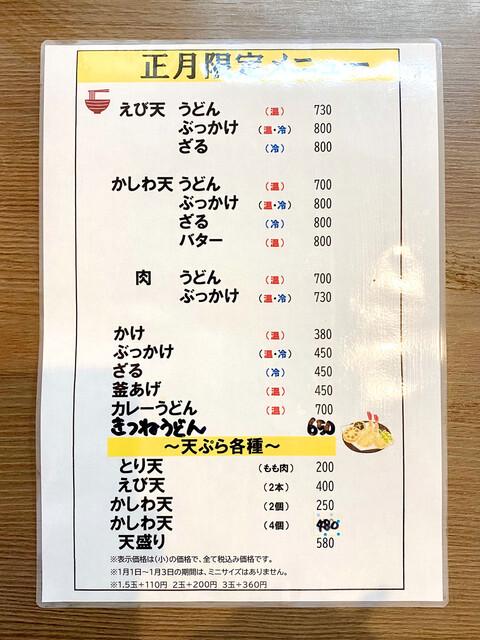 正月限定メニュー
えび天 うどん (温) 730
ぶっかけ (温・冷) 800
ざる (冷) 800
かしわ天 うどん (温) 700
ぶっかけ (温・冷) 800
ざる (冷) 800
バター (温) 800
肉 うどん (温) 700
ぶっかけ (温・冷) 730
かけ (温) 380
ぶっかけ (温・冷) 450
ざる (冷) 450
釜あげ (温) 450
カレーうどん (温) 700
きつねうどん 650
～天ぷら各種～
とり天 (もも肉) 200
えび天 (2本) 400
かしわ天 (2個) 250
かしわ天 (4個) 480
天盛り 580
※表示価格は(小)の価格で、全て税込み価格です。
※1月1日～1月3日の期間は、ミニサイズはありません。
※1.5玉+110円 2玉+200円 3玉+360円